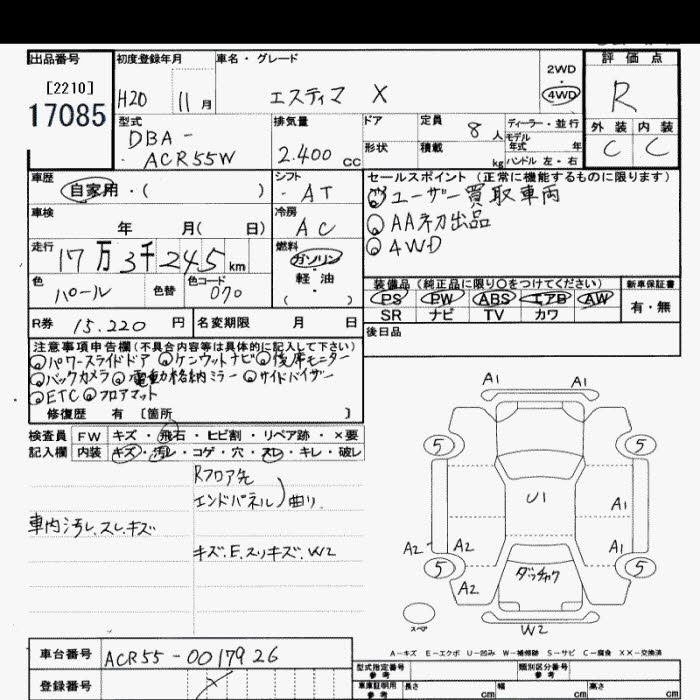 出品番号 初度登録年月 車名・グレード 評価点
[2210] 2WD
17085 H20 11月 エスティマ X 4WD R
型式 排気量 ドア 定員 8人 ディーラー・並行 外装 内装
DBA- モデル年式 年
ACR55W 2.400 cc 形状 積載 kg ハンドル 左・右 C C
車歴 シフト セールスポイント (正常に機能するものに限ります)
自家用・( ) AT ユーザー買取車両
車検 冷房 AA初出品
年 月( 日) AC 4WD
走行 燃料
17万3千245km ガソリン
色 色替 色コード 軽油 装備品 (純正品に限り○をつけてください) 新車保証書
パール 070 ( ) PS PW ABS エアB AW 有・無
R券 15.220円 名変期限 月 日 SR ナビ TV カワ
後日品
注意事項申告欄(不具合内容等は具体的に記入して下さい)
パワースライドドア ケンウッドナビ 後席モニター
バックカメラ 電動格納ミラー サイドバイザー
ETC フロアマット
修復歴 有 [箇所 ]
検査員 FW キズ・飛石・ヒビ割・リペア跡・×要
記入欄 内装 キズ・汚レ・コゲ・穴・スレ・キレ・破レ
Rフロア先
エンドパネル)曲り
車内汚レ.スレ.キズ
キズ.E.スリキズ.W2
A1 A1
5 5
U1 A1
A2 A2 A1
5 5
A2 ダッチャク
スペア
W2
A-キズ E-エクボ U-凹み W-補修跡 S-サビ C-腐食 XX-交換済
車台番号 ACR55-0017926 型式指定番号 参考 類別区分番号 参考
登録番号 車庫証明用 参考 長さ cm 幅 cm 高さ cm